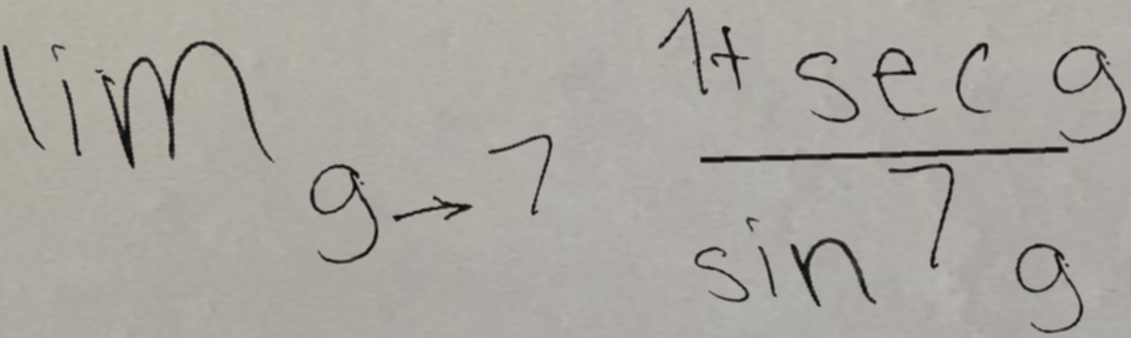 lim g→7 (1+ sec g)/(sin^7 g)